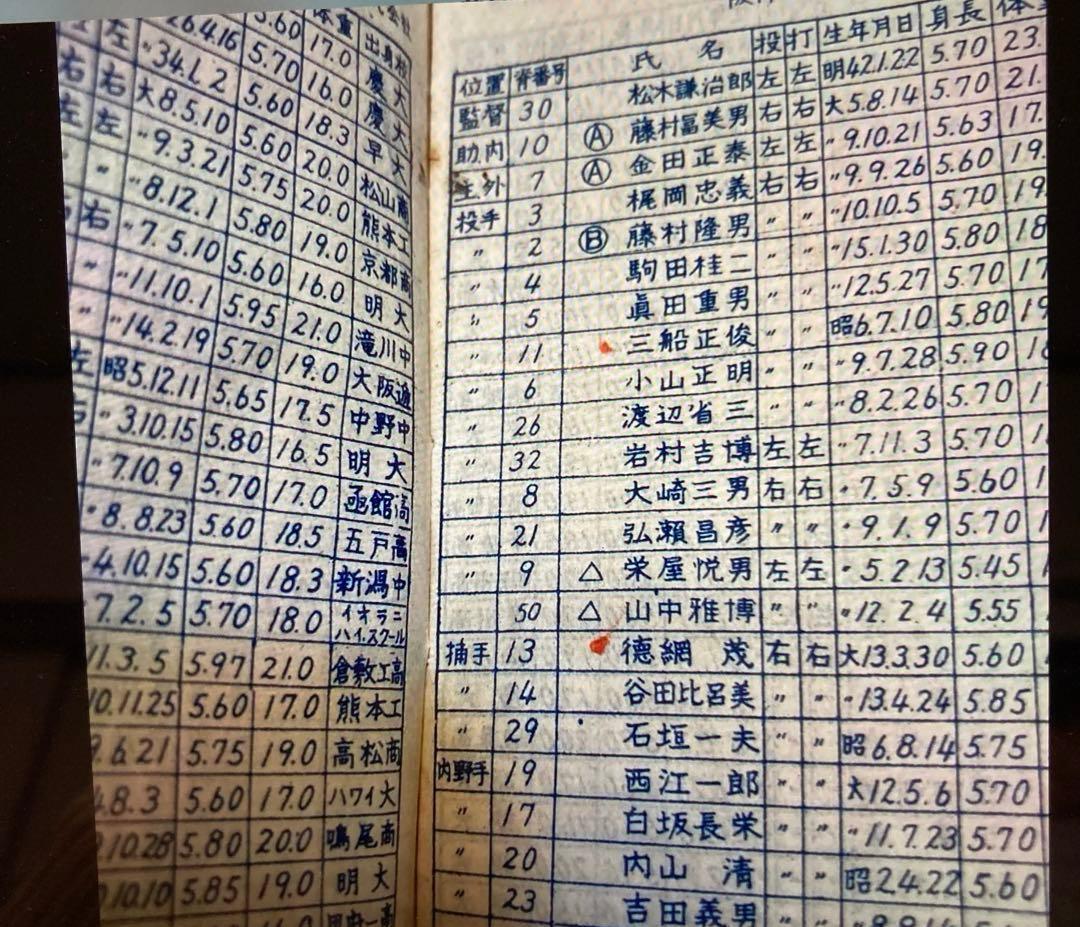 体重 出身校
5.60 17.0 慶大
左 26.4.16 5.70 16.0 慶大
右 右 〃34.1.2 5.60 18.3 早大
左 左 大8.5.10 5.60 20.0 松山商
〃 〃 〃9.3.21 5.75 20.0 熊本工
〃 〃 〃8.12.1 5.80 19.0 京都商
右 〃7.5.10 5.60 16.0 明大
〃 〃11.10.1 5.95 21.0 滝川中
〃 〃14.2.19 5.70 19.0 大阪逓
左 昭5.12.11 5.65 17.5 中野中
〃3.10.15 5.80 16.5 明大
〃 7.10.9 5.70 17.0 函館高
〃8.8.23 5.60 18.5 五戸高
〃4.10.15 5.60 18.3 新潟中
7.2.5 5.70 18.0 イオラニハイスクール
11.3.5 5.97 21.0 倉敷工高
10.11.25 5.60 17.0 熊本工
9.6.21 5.75 19.0 高松商
8.3 5.60 17.0 ハワイ大
10.28 5.80 20.0 鳴尾商
10.10 5.85 19.0 明大
位置 背番号 氏名 投 打 生年月日 身長 体
監督 30 松木謙治郎 左 左 明42.1.22 5.70 23.
助内 10 Ⓐ 藤村冨美男 右 右 大5.8.14 5.70 21.
主外 7 Ⓐ 金田正泰 左 左 〃9.10.21 5.63 17.
投手 3 梶岡忠義 右 右 〃9.9.26 5.60 19.
〃 2 Ⓑ 藤村隆男 〃 〃 〃10.10.5 5.70 19
〃 4 駒田桂二 〃 〃 〃15.1.30 5.80 18
〃 5 眞田重男 〃 〃 〃12.5.27 5.70 17
〃 11 三船正俊 〃 〃 昭6.7.10 5.80 19
〃 6 小山正明 〃 〃 〃9.7.28 5.90
〃 26 渡辺省三 〃 〃 〃8.2.26 5.70
〃 32 岩村吉博 左 左 〃7.11.3 5.70
〃 8 大崎三男 右 右 〃7.5.9 5.60
〃 21 弘瀬昌彦 〃 〃 〃9.1.9 5.70
〃 9 △ 栄屋悦男 左 左 〃5.2.13 5.45
50 △ 山中雅博 〃 〃 〃12.2.4 5.55
捕手 13 徳網茂 右 右 大13.3.30 5.60
〃 14 谷田比呂美 〃 〃 〃13.4.24 5.85
〃 29 石垣一夫 〃 〃 昭6.8.14 5.75
内野手 19 西江一郎 〃 〃 大12.5.6 5.70
〃 17 白坂長栄 〃 〃 〃11.7.23 5.70
〃 20 内山清 〃 〃 昭2.4.22 5.60
〃 23 吉田義男 〃 〃